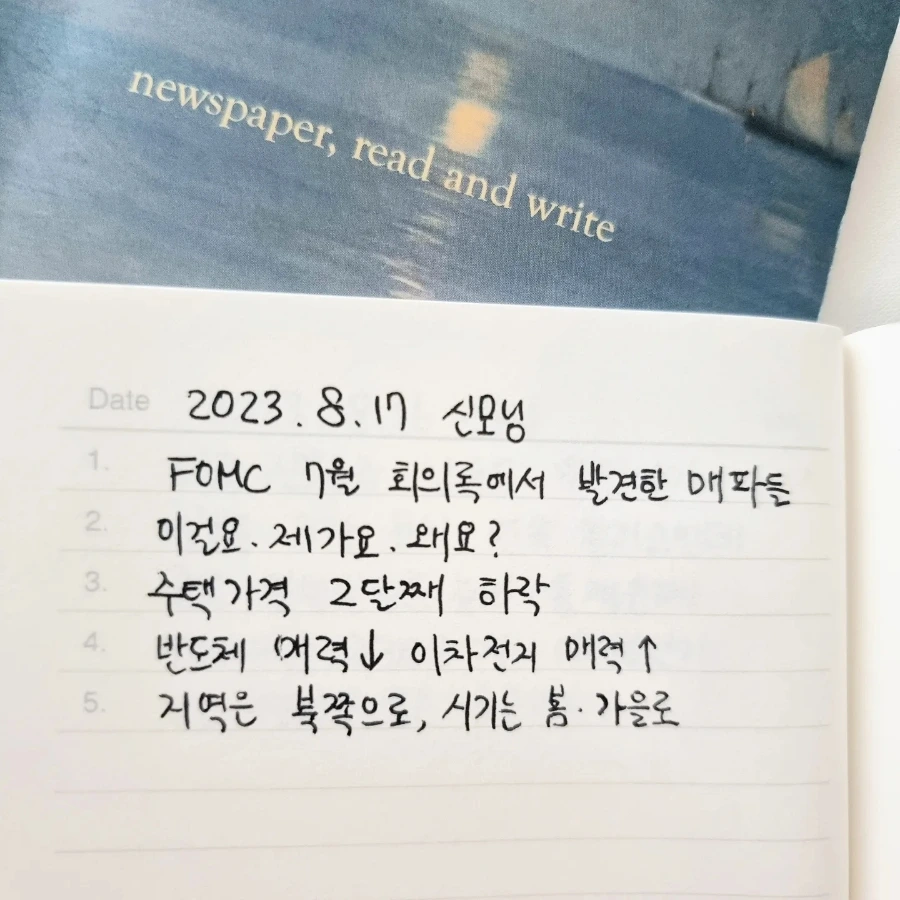 newspaper, read and write
Date 2023.8.17 신모닝
1. FOMC 7월 회의록에서 발견한 매파들
2. 이걸요. 제가요. 왜요?
3. 주택가격 2달째 하락
4. 반도체 매력↓ 이차전지 매력↑
5. 지역은 북쪽으로, 시기는 봄·가을로